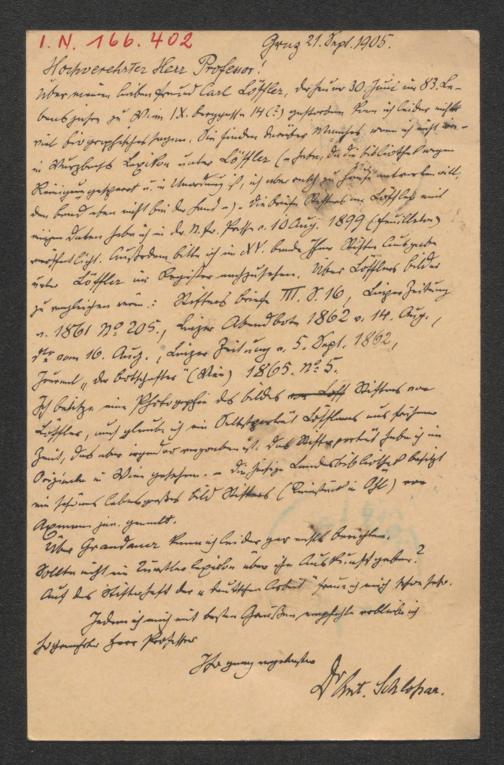 I. N. 166.402
Graz 21. Sept. 1905.
Hochverehrter Herr Professor!
Über meinen lieben Freund Carl Löffler, der heuer 30. Juni im 83. Le-
bensjahre zu Wien IX. Berggasse 14 (?) gestorben kann ich leider nicht
viel biographisches sagen. Sie finden darüber Manches, wenn ich nicht irre
in Wurzbachs Lexikon unter Löffler (
Reinigung gesperrt u. in Unordnung ist, ich aber rasch zu Hause antworten will,
den Band eben nicht bei der Hand –). Die Briefe Stifters an Löffler mit
einigen Daten habe ich in der N. fr. Presse v. 10 Aug. 1899 (Feuilleton)
veröffentlicht. Außerdem bitte ich im XV. Bande Ihrer Stifter Ausgabe
unter Löffler im Register nachzusehen. Über Löfflers Bilder
zu vergleichen wären: Stifters Briefe III. S. 16, Linzer Zeitung
v. 1861 No 205., Linzer Abendbote 1862 v. 14. Aug.,
vom 16. Aug., Linzer Zeitung v. 5. Sept. 1862,
Journal „der Botschafter" (Wien) 1865. No. 5.
Ich besitze eine Photographie des Bildes Stifters von
Löffler, auch glaube ich ein Selbstporträt Löfflers aus früherer
Zeit, das aber irgendwo vergraben ist. Das Stifterporträt habe ich im
Originale in Wien gesehen. – Die hiesige Landesbibliothek besitzt
ein schönes lebensgroßes Bild Stifters (Kniestück in Öhl) von
Axmann jun. gemalt.
Über Grandauer kann ich leider gar nichts berichten.
Sollte nicht ein Künstler Lexikon über ihn Auskunft geben?
Auf das Stifterheft der „Deutschen Arbeit" freue ich mich schon sehr.
Indem ich mich mit besten Grüßen empfehle verbleibe ich
hochgeehrter Herr Professor
Ihr ganz ergebenster
Dr Ant. Schlossar.